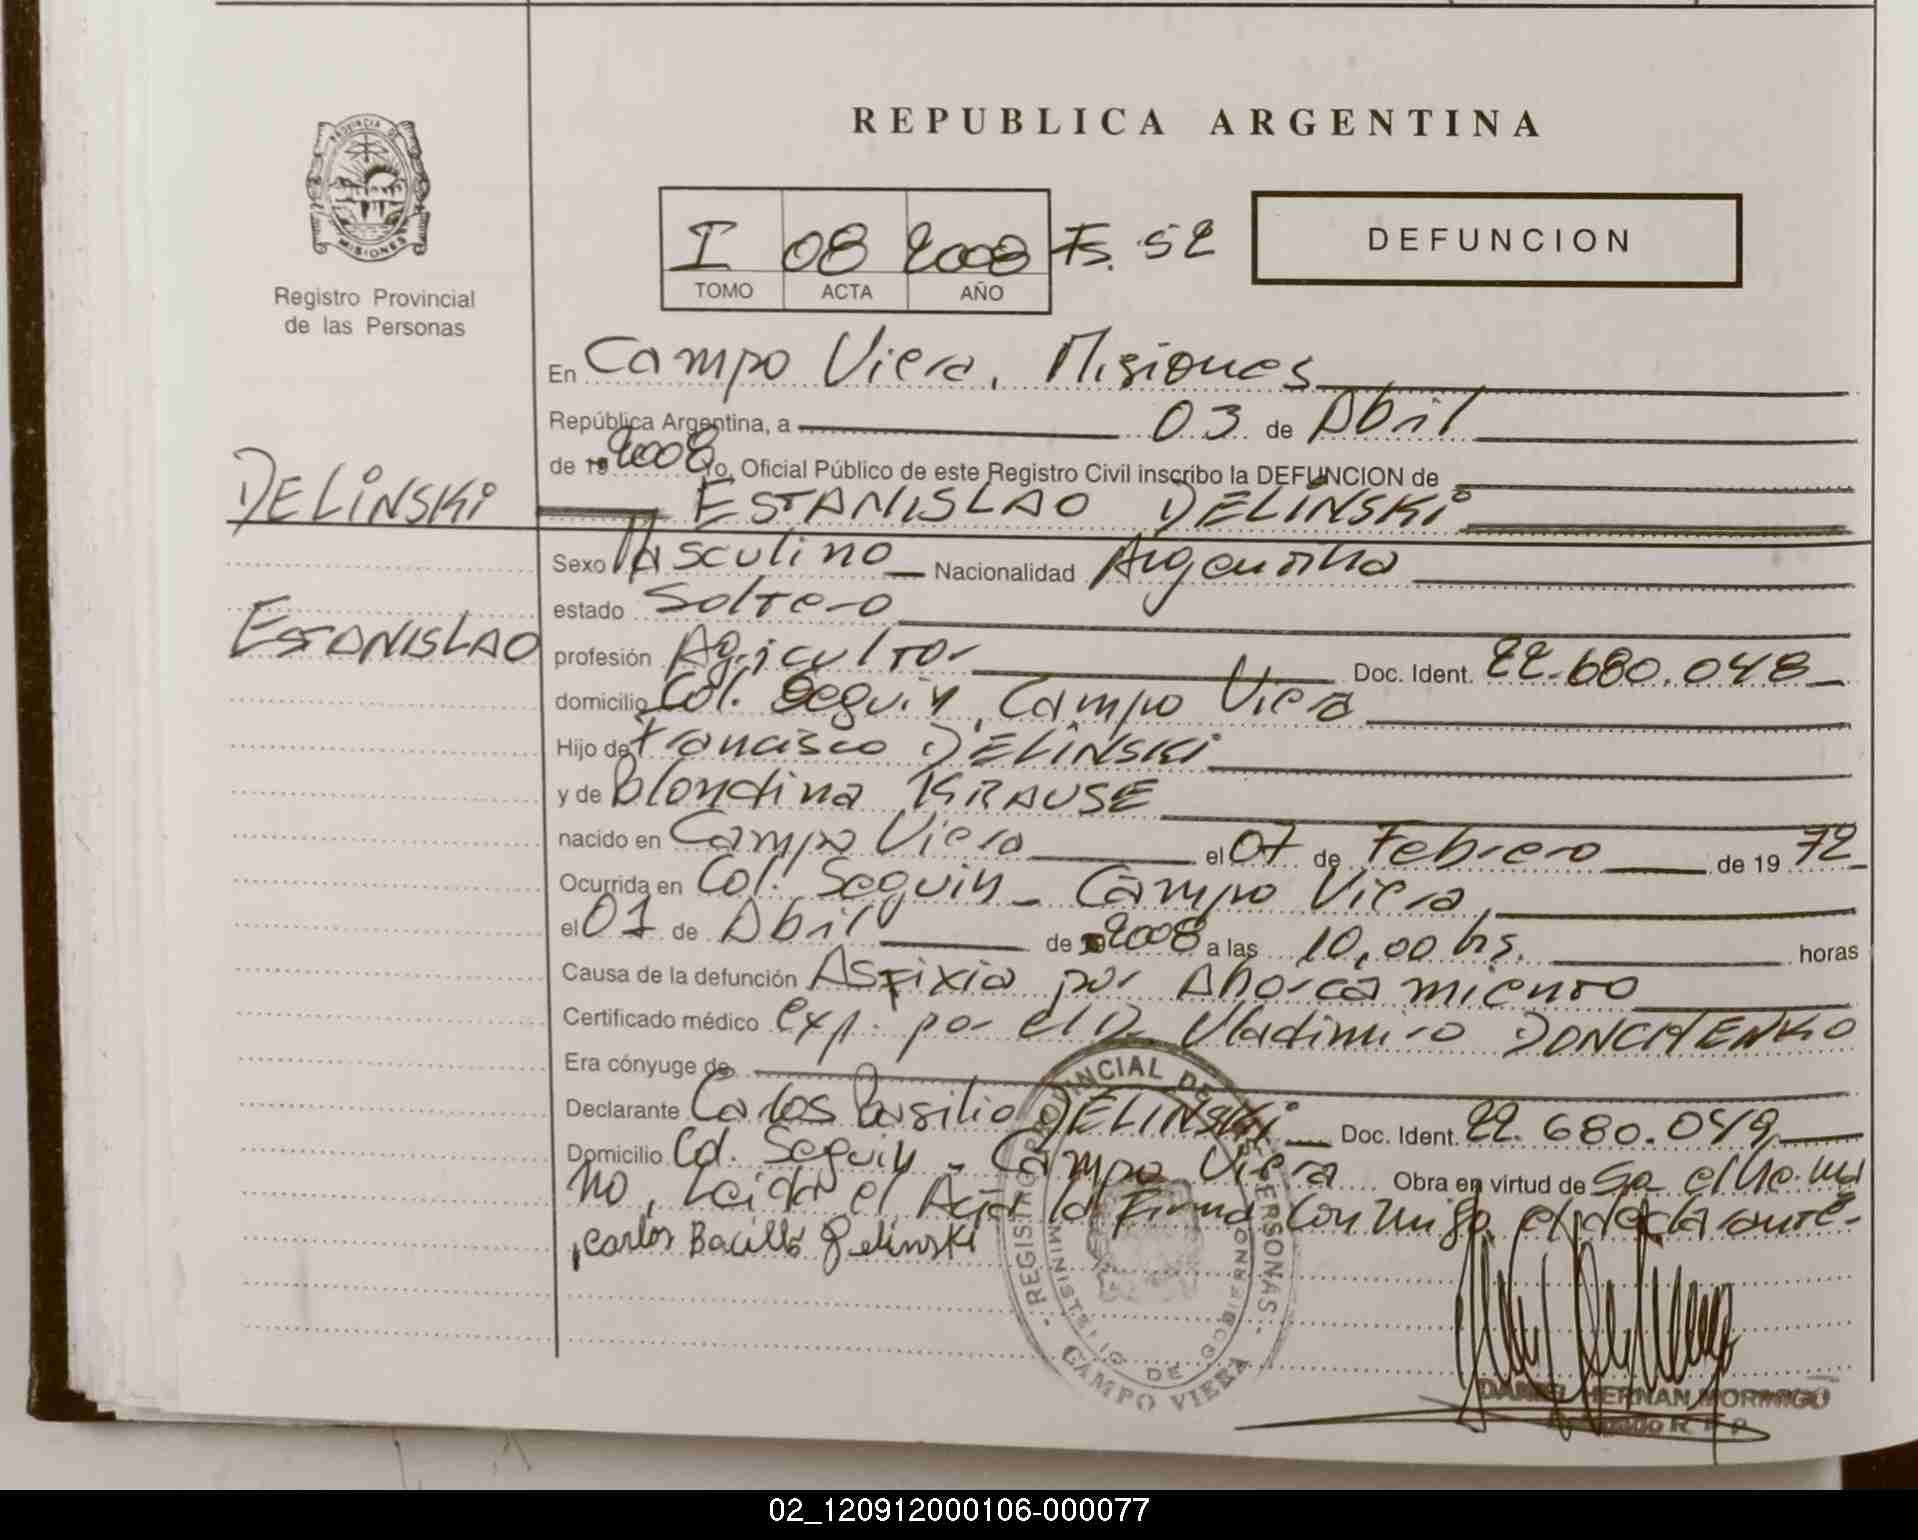 REPUBLICA ARGENTINA
PROVINCIA DE
MISIONES
Registro Provincial
de las Personas
I 08 2008 Fs. 52
TOMO ACTA AÑO
DEFUNCION
En Campo Viera, Misiones
República Argentina, a 03 de Abril
de 19 2008 Yo, Oficial Público de este Registro Civil inscribo la DEFUNCION de
DELINSKI
ESTANISLAO DELINSKI
Sexo Masculino Nacionalidad Argentina
estado Soltero
ESTANISLAO
profesión Agricultor Doc. Ident. 22.680.048
domicilio Col. Seguin, Campo Viera
Hijo de Francisco DELINSKI
y de Blondina KRAUSE
nacido en Campo Viera el 07 de Febrero de 19 72
Ocurrida en Col. Seguin - Campo Viera,
el 01 de Abril de 2008 a las 10,00 hs. horas
Causa de la defunción Asfixia por Ahorcamiento
Certificado médico exp. por el Dr Vladimiro DONCHENKO
Era cónyuge de
Declarante Carlos Basilio DELINSKI Doc. Ident. 22.680.049
Domicilio Col. Seguin - Campo Viera Obra en virtud de Ser el Herma
no, Leida el Acta la Firma Conmigo el declarante-
Carlos Bacilio Delinski
REGISTRO PROVINCIAL DE PERSONAS
MINISTERIO DE GOBIERNO
CAMPO VIERA
DANIEL HERNAN MORINIGO
R. P. P.
02_120912000106-000077